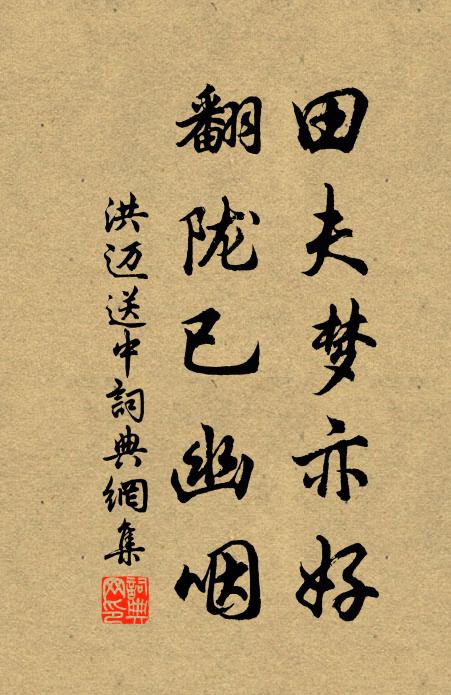 田夫梦亦好
翻陇已幽咽
洪迈送中詞典網集
詞典网印